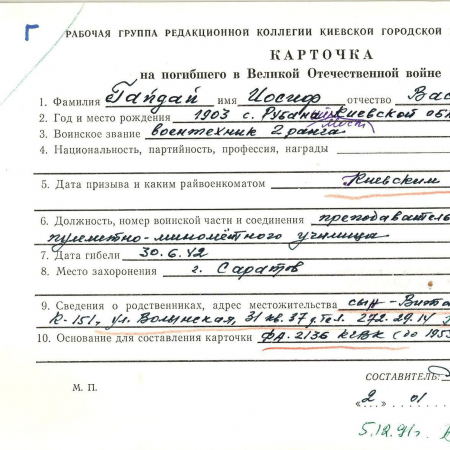 Г
РАБОЧАЯ ГРУППА РЕДАКЦИОННОЙ КОЛЛЕГИИ КИЕВСКОЙ ГОРОДСКОЙ
КАРТОЧКА
на погибшего в Великой Отечественной войне
1. Фамилия Гайдай имя Иосиф отчество Вас
2. Год и место рождения 1903 с. Киевской обл
3. Воинское звание воентехник 2 ранга
4. Национальность, партийность, профессия, награды
5. Дата призыва и каким райвоенкоматом Киевским
6. Должность, номер воинской части и соединения преподаватель
пулеметно-миномётного училища
7. Дата гибели 30.6.42
8. Место захоронения г. Саратов
9. Сведения о родственниках, адрес местожительства сын - Вита
К-151, ул. Волынская, 31 кв. 37 д. тел. 272.29.14
10. Основание для составления карточки ФА. 2136 КГВК (до 1953
СОСТАВИТЕЛЬ:
М. П.
„2“ 01
5.12.91г.